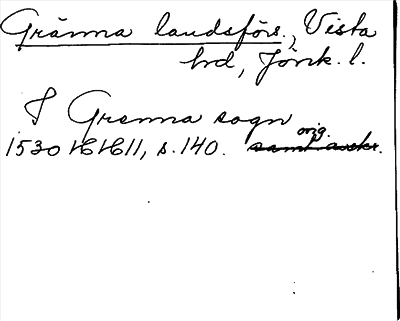 Gränna landsförs., Vista
hrd, Jönk. l.
J Grenna sogn
orig.
1530 16/4611, s. 140. samt. avskr.